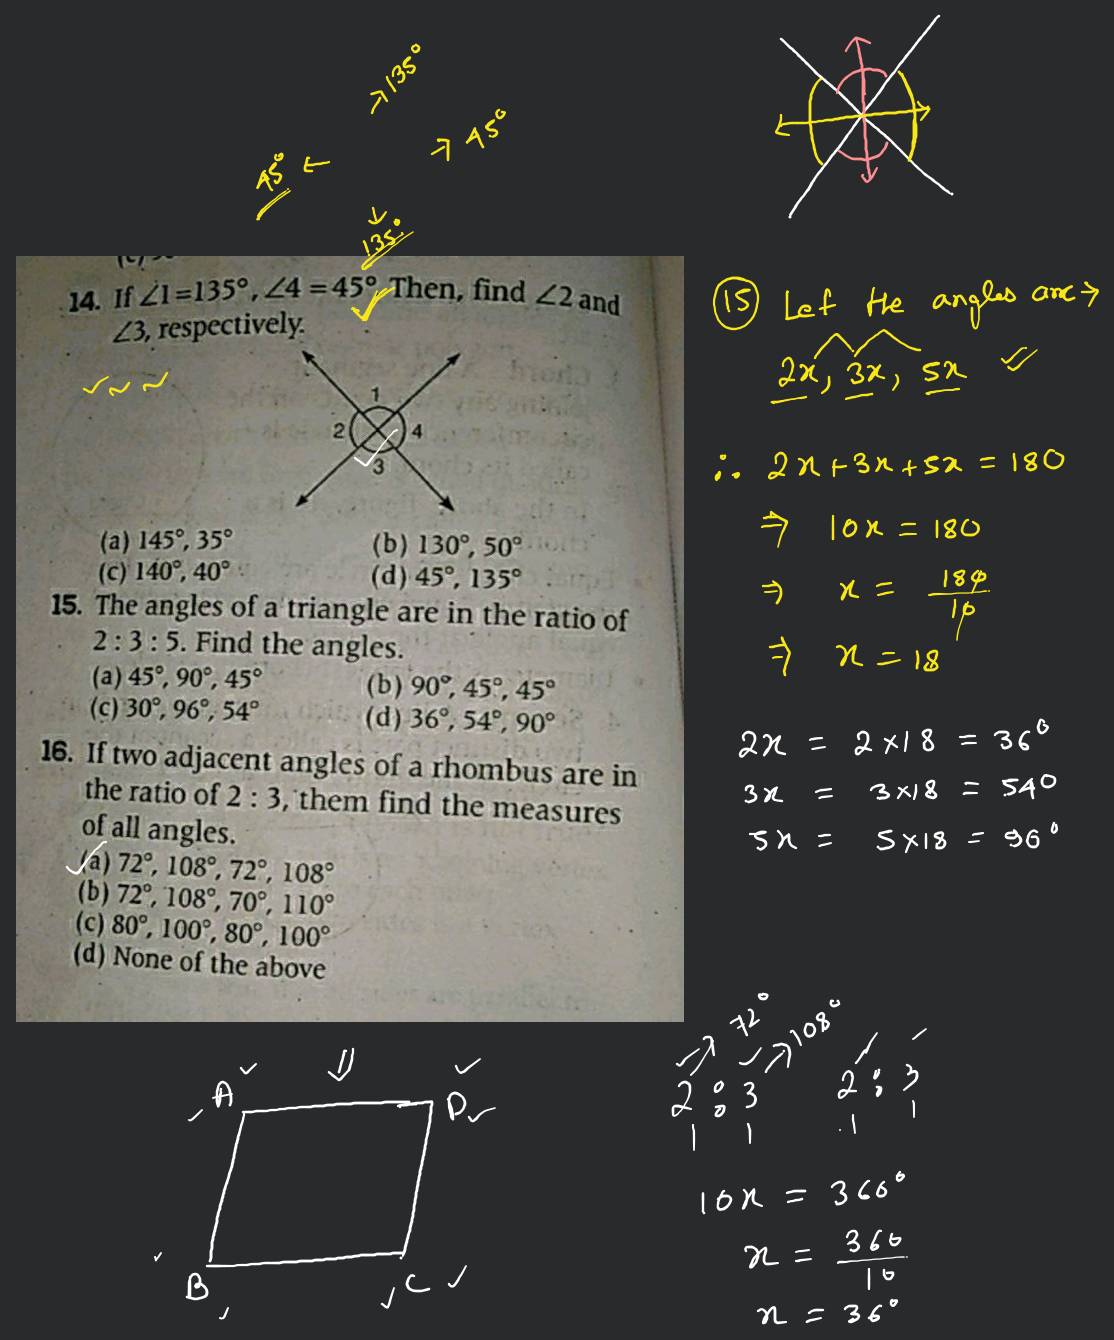 → 135°
→ 45°
45° ←
↓
135°
14. If ∠1=135°, ∠4 = 45° Then, find ∠2 and
∠3, respectively.
1
2
4
3
(a) 145°, 35°
(b) 130°, 50°
(c) 140°, 40°
(d) 45°, 135°
15. The angles of a triangle are in the ratio of
2 : 3 : 5. Find the angles.
(a) 45°, 90°, 45°
(b) 90°, 45°, 45°
(c) 30°, 96°, 54°
(d) 36°, 54°, 90°
16. If two adjacent angles of a rhombus are in
the ratio of 2 : 3, them find the measures
of all angles.
(a) 72°, 108°, 72°, 108°
(b) 72°, 108°, 70°, 110°
(c) 80°, 100°, 80°, 100°
(d) None of the above
(15) Let the angles are →
2x, 3x, 5x
∴ 2x+3x+5x = 180
⇒ 10x = 180
⇒ x = 180
10
⇒ x = 18
2x = 2×18 = 36°
3x = 3×18 = 540
5x = 5×18 = 90°
A
D
B
C
→ 72°
→ 108°
2 : 3
2 : 3
1 1
1 1
10x = 360°
x = 360
10
x = 36°